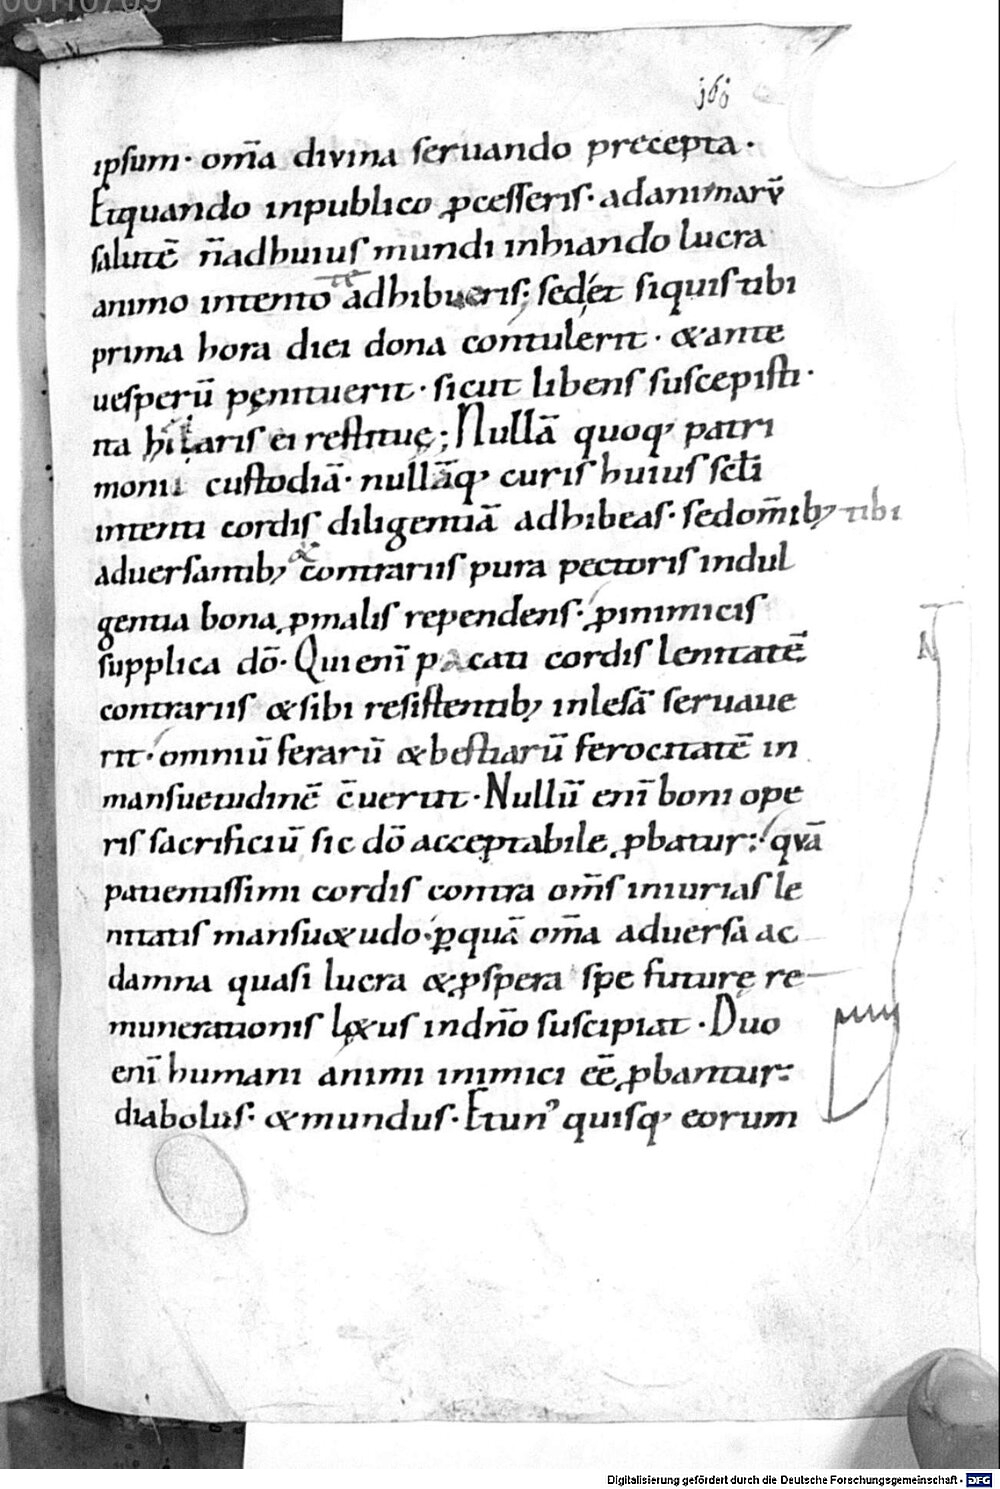 00110709
166
ipsum· om̅a divina seruando precepta·
Et quando inpublico ꝓcesseris· adanimarū
salutē n̄adhuius mundi inhiando lucra
animo intento te adhibueris; sed,et siquis tibi
prima hora diei dona contulerit· &ante
uesperū pęnituerit· sicut libens suscepisti·
ita hilaris ei restituę; Nullā quoq; patri
monii custodiā· nullāq; curis huius sc̄li
intenti cordis diligentiā adhibeas· sedom̄ib; tibi
aduersantib; & contrariis pura pectoris indul
gentia bona ꝓmalis rependens· ꝓinimicis
supplica dō· Qui enī pacati cordis lenitatē
contrariis &sibi resistentib; inlesā seruaue
rit· omniū ferarū &bestiarū ferocitatē in
mansuetudinē c̄uertit· Nullū enī boni ope
ris sacrificiū sic dō acceptabile ꝓbatur; quā
patientissimi cordis contra om̄s iniurias le
nitatis mansu&udo· ꝑquā om̄a aduersa ac
damna quasi lucra &ꝓspera spe futurę re
munerationis lę&us indn̄o suscipiat· Duo
enī humani animi inimici eē ꝓbantur:
diabolus· &mundus· Et un' quisq; eorum
N
Digitalisierung gefördert durch die Deutsche Forschungsgemeinschaft - DFG